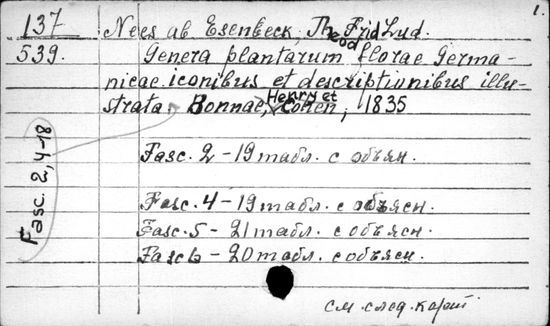 1.
137
539.
Nees ab Esenbeck, Theod Frid Lud.
Genera plantarum florae Germa-
nicae iconibus et descriptionibus illu-
strata. Bonnae, Henry et Cohen, 1835
Fasc. 2, 4-18
Fasc. 2 - 19 табл. с объян.
Fasc. 4 - 19 табл. с объясн.
Fasc. 5 - 21 табл. с объясн.
Fasc 6 - 20 табл. с объясн.
см. след. карт